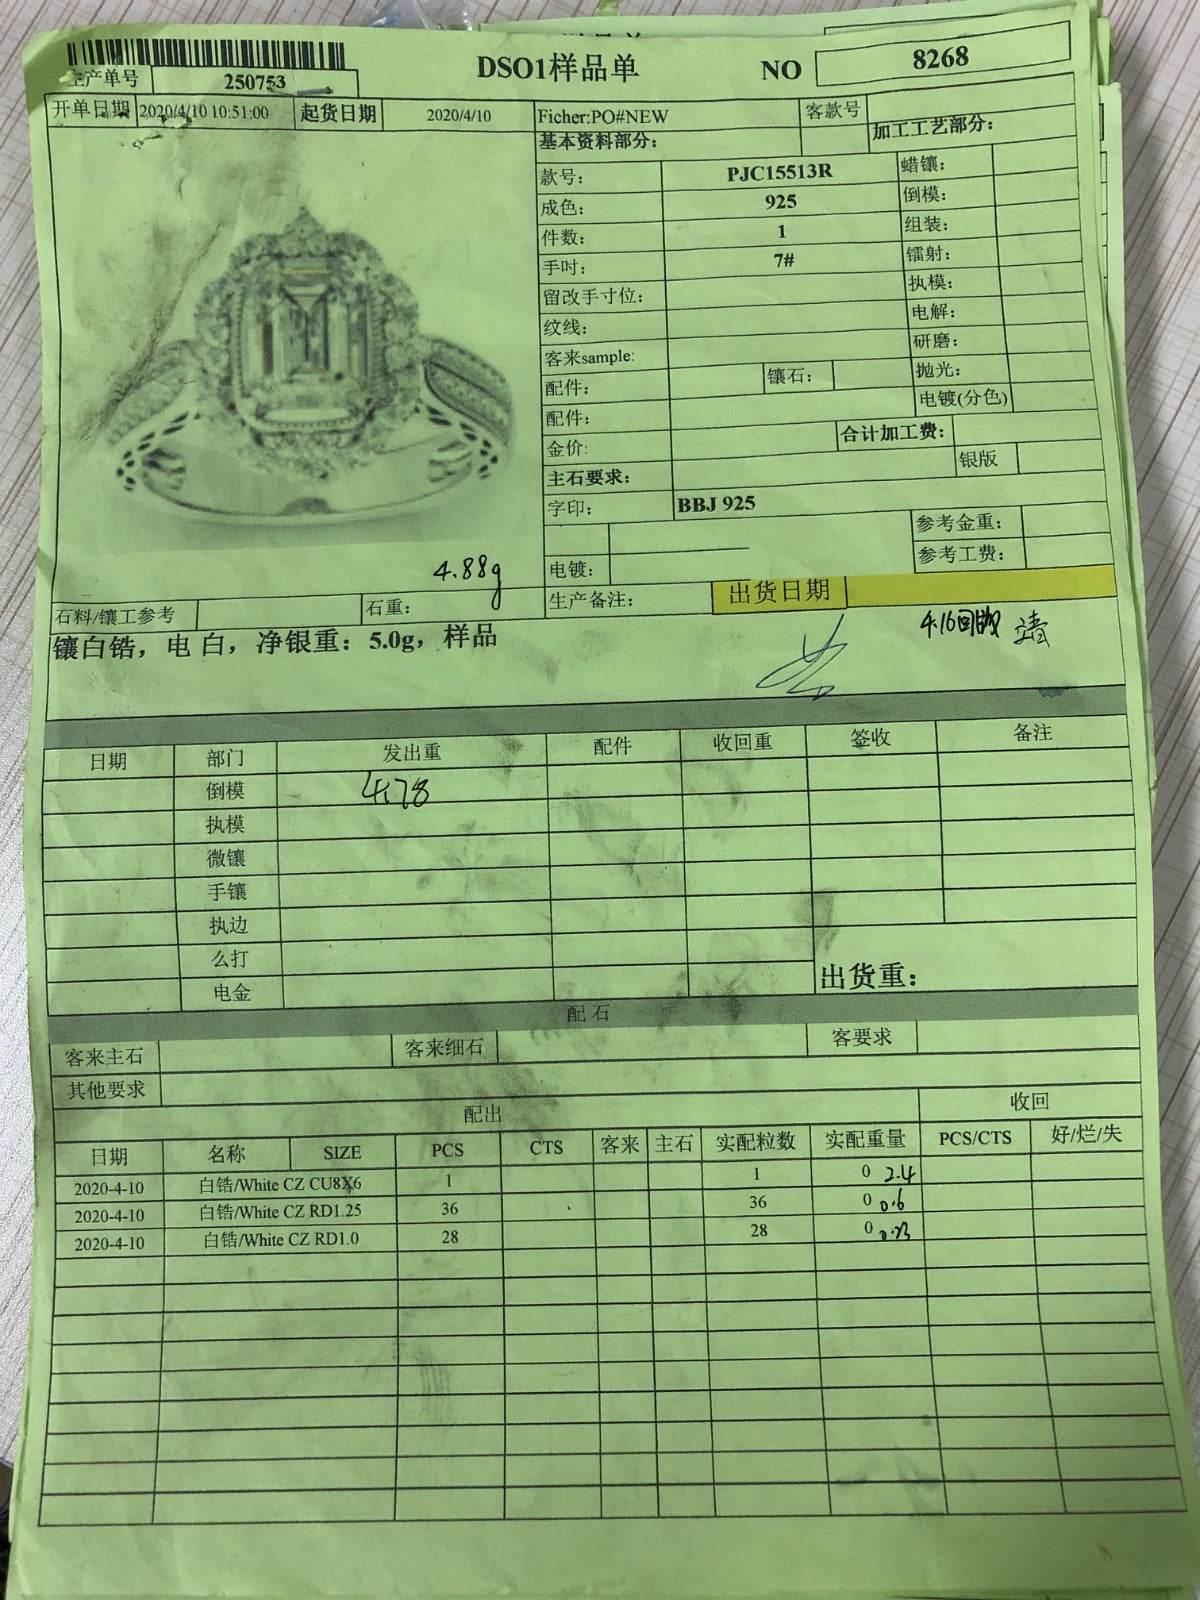 生产单号 250753
DSO1样品单 NO 8268
开单日期 2020/4/10 10:51:00 起货日期 2020/4/10 Ficher:PO#NEW 客款号
基本资料部分： 加工工艺部分：
款号： PJC15513R 蜡镶：
成色： 925 倒模：
件数： 1 组装：
手吋： 7# 镭射：
留改手寸位： 执模：
纹线： 电解：
客来sample: 研磨：
配件： 镶石： 抛光：
配件： 电镀(分色)
金价: 合计加工费：
主石要求： 银版
字印： BBJ 925
参考金重：
电镀： 参考工费：
4.88g
石料/镶工参考 石重： 生产备注： 出货日期
镶白锆，电 白，净银重：5.0g，样品
4.16回
日期 部门 发出重 配件 收回重 签收 备注
倒模 4.78
执模
微镶
手镶
执边
么打
电金
出货重：
配 石
客来主石 客来细石 客要求
其他要求
配出 收回
日期 名称 SIZE PCS CTS 客来 主石 实配粒数 实配重量 PCS/CTS 好/烂/失
2020-4-10 白锆/White CZ CU8X6 1 1 0 2.4
2020-4-10 白锆/White CZ RD1.25 36 36 0 0.6
2020-4-10 白锆/White CZ RD1.0 28 28 0 0.23